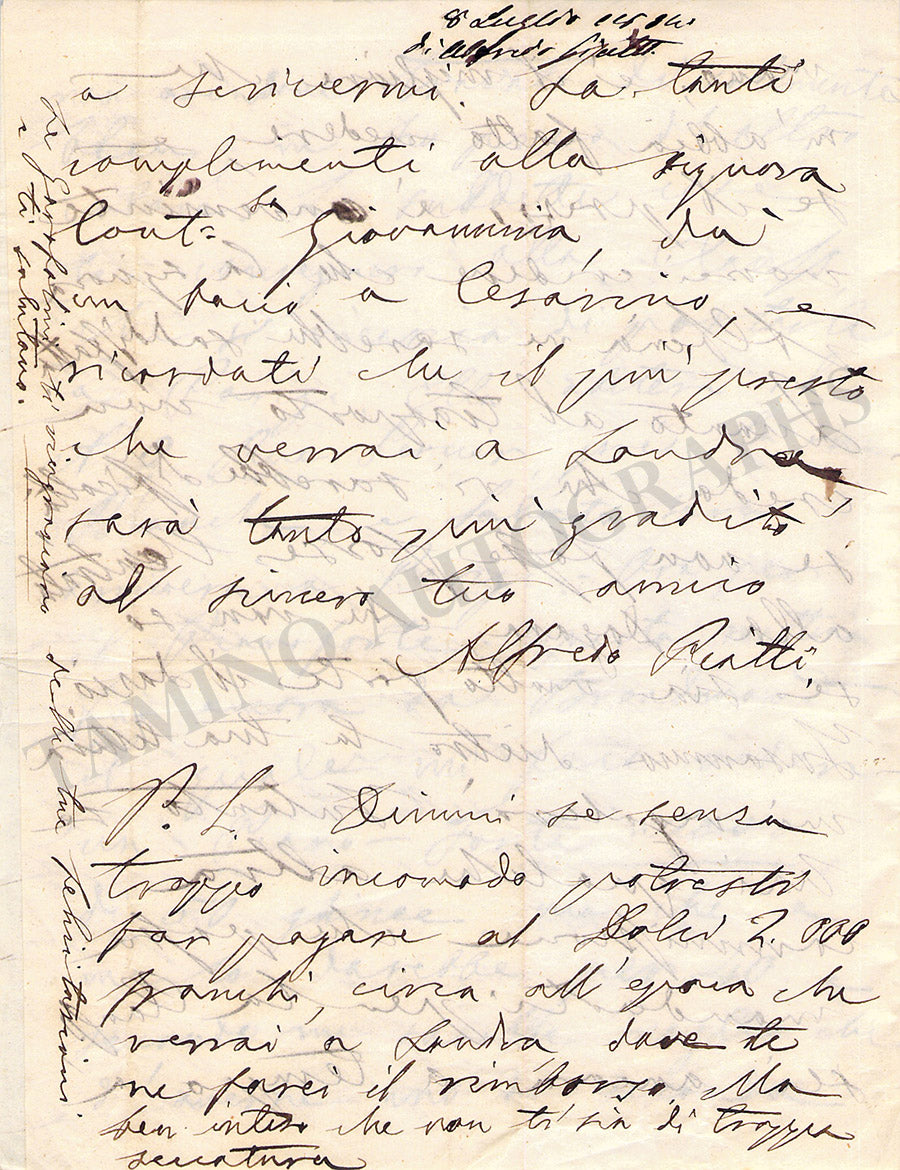 8 Luglio
di Alfredo Piatti
a scrivermi. Fa tanti
complimenti alla signora
Cont=sa Giovannina, dà
un bacio a Cesarino, e
ricordati che il più presto
che verrai a Londra
sarà tanto più gradito
al sincero tuo amico
Alfredo Piatti.
P. S. Dimmi se senza
troppo incomodo potresti
far pagare al Dolci 2.000
franchi, circa all'epoca che
verrai a Londra, dove te
ne farei il rimborso. Ma
ben inteso che non ti sia di troppa
seccatura
Le ti ringraziano delle tue felicitazioni
e ti salutano.
TAMINO AUTOGRAPHS